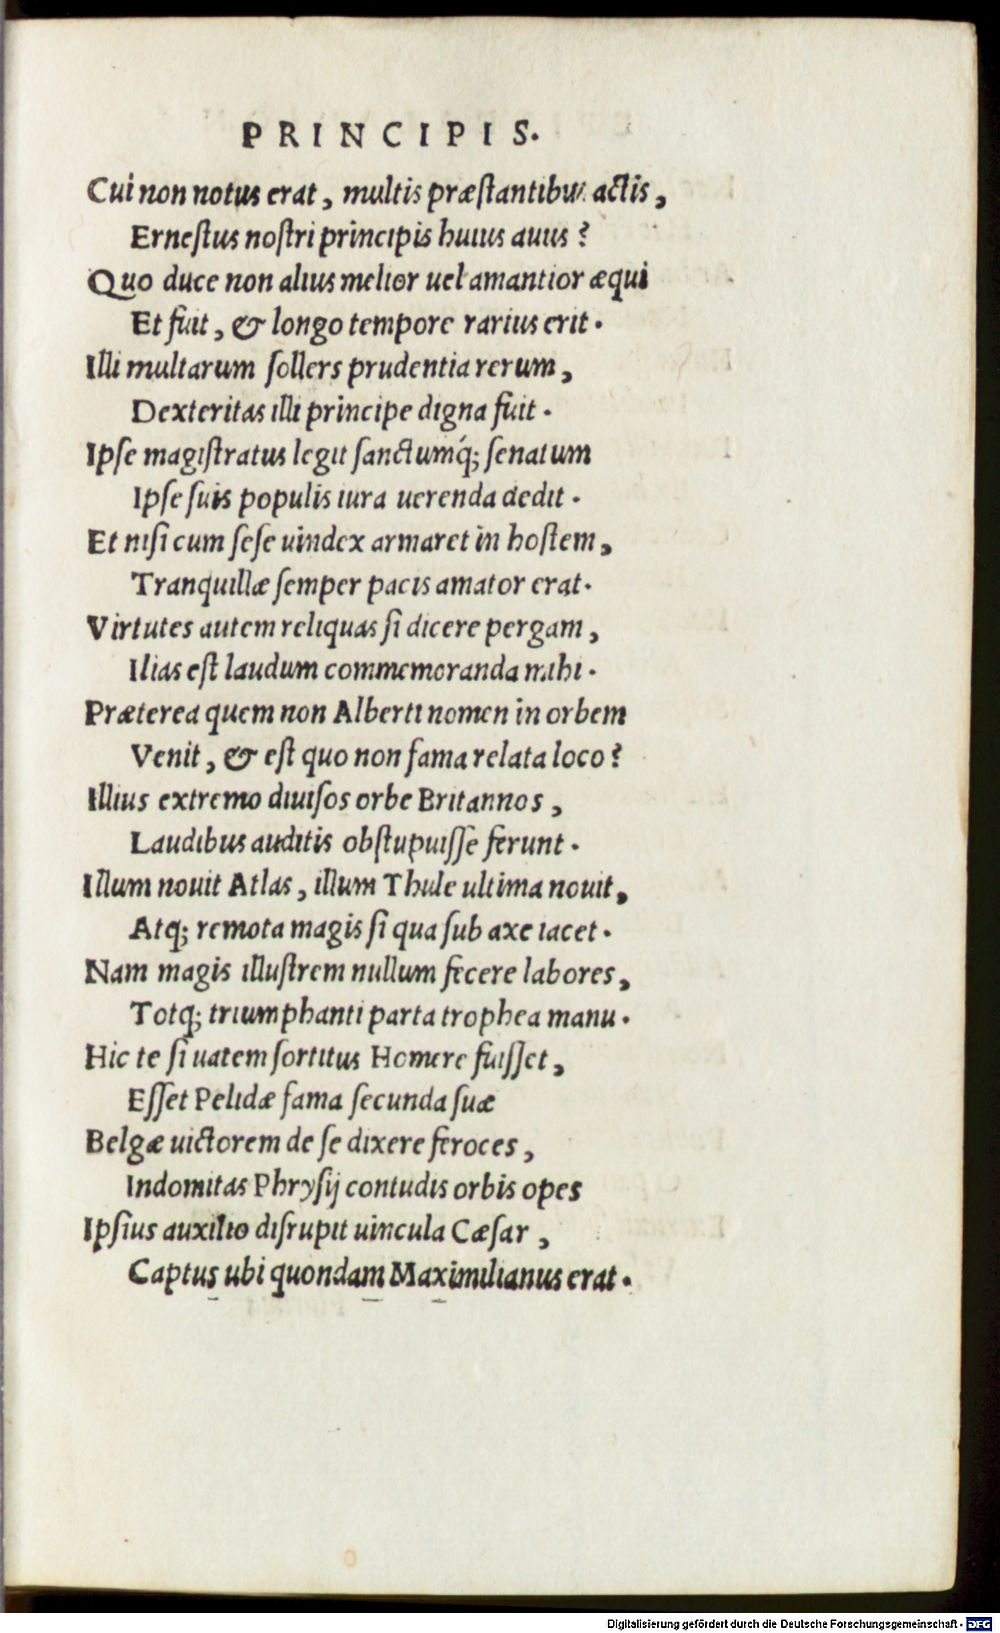 PRINCIPIS.
Cui non notus erat, multis præſtantibus actis,
Erneſtus noſtri principis huius auus?
Quo duce non alius melior uel amantior æqui
Et fuit, & longo tempore rarius erit.
Illi multarum ſollers prudentia rerum,
Dexteritas illi principe digna fuit.
Ipſe magiſtratus legit ſanctumq́; ſenatum
Ipſe ſuis populis iura uerenda dedit.
Et niſi cum ſeſe uindex armaret in hoſtem,
Tranquillæ ſemper pacis amator erat.
Virtutes autem reliquas ſi dicere pergam,
Ilias eſt laudum commemoranda mihi.
Præterea quem non Alberti nomen in orbem
Venit, & eſt quo non fama relata loco?
Illius extremo diuiſos orbe Britannos,
Laudibus auditis obſtupuiſſe ferunt.
Illum nouit Atlas, illum Thule ultima nouit,
Atq; remota magis ſi qua ſub axe iacet.
Nam magis illuſtrem nullum fecere labores,
Totq; triumphanti parta trophea manu.
Hic te ſi uatem ſortitus Homere fuiſſet,
Eſſet Pelidæ fama ſecunda ſuæ
Belgæ uictorem de ſe dixere feroces,
Indomitas Phryſij contudis orbis opes
Ipſius auxilio diſrupit uincula Cæſar,
Captus ubi quondam Maximilianus erat.
Digitalisierung gefördert durch die Deutsche Forschungsgemeinschaft - DFG